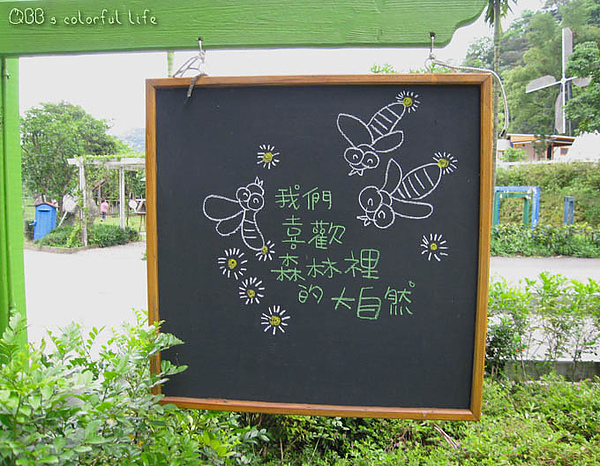 QBB's colorful life
我們
喜歡
森林裡
的大自然